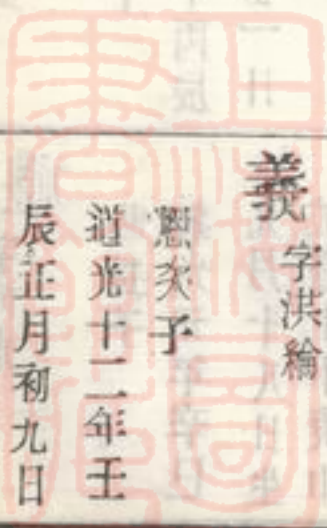 義 字洪綸
恩次子
道光十二年壬
辰正月初九日